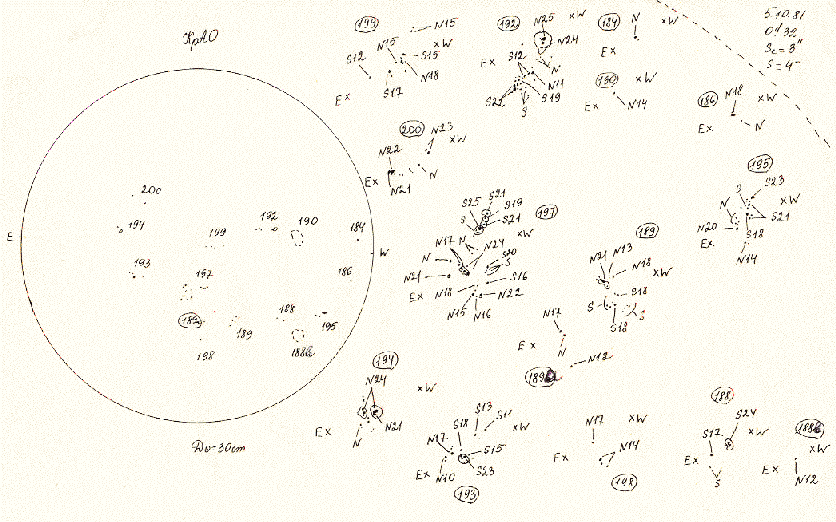 КрАО
5.10.81
S=4"
E
W
200
194
199
192
190
184
193
197
186
189
188
195
198
N15
N15
S15
xW
S12
N18
S17
Ex
192
N25
xW
N24
S12
Ex
N
N11
S22
S19
S
184
N
xW
Ex
190
xW
Ex
N14
N18
186
xW
Ex
N
200
N23
xW
N22
Ex
N21
N
S21
S25
S19
S
S21
197
N17
N
N24
xW
N
S20
S
N21
S16
Ex
N18
N22
N15
N16
189
N21
N13
N18
xW
S18
S
S
S18
195
S23
S
xW
N
S21
N20
S18
Ex
N14
N17
Ex
N
N12
194
N24
xW
Ex
N21
N
S13
S18
N17
S15
Ex
N10
S23
193
xW
N17
xW
N14
Ex
198
188
S24
S17
xW
Ex
S
xW
Ex
N12